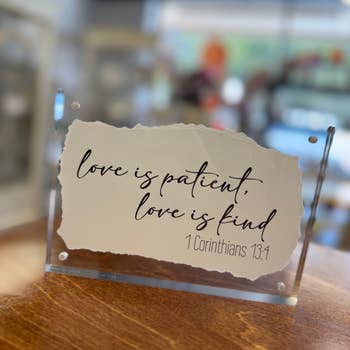 love is patient,
love is kind
1 Corinthians 13:4